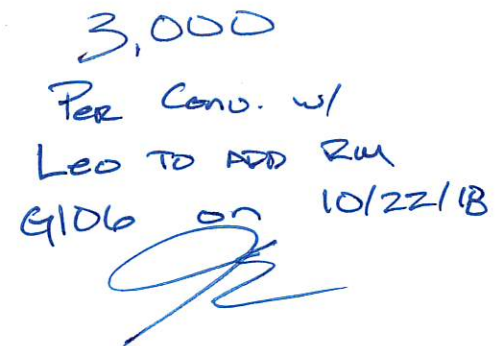 3,000
Per Conv. w/
Leo TO ADD Rm
G106 on 10/22/18